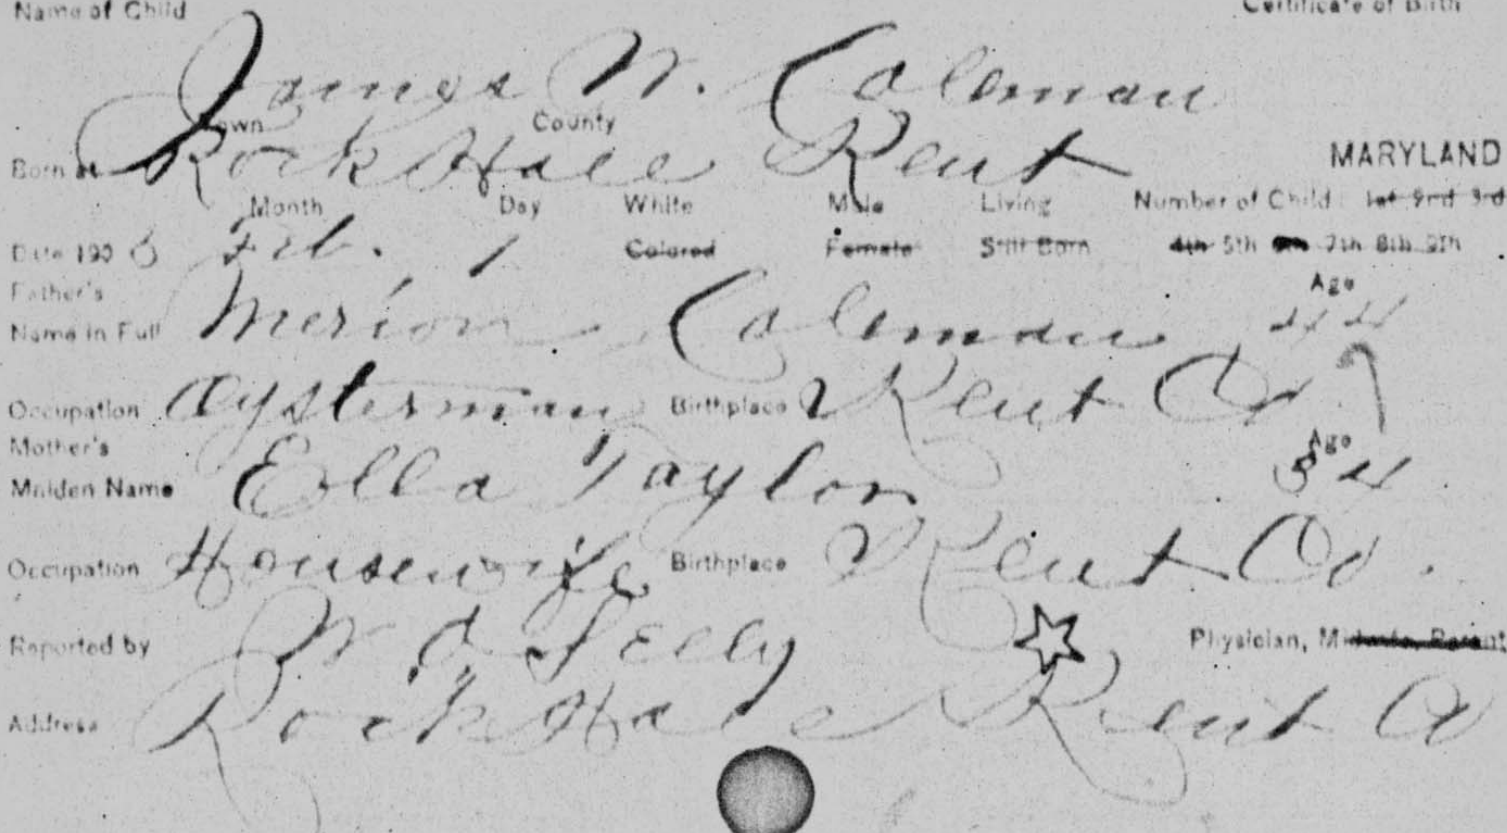 Name of Child Certificate of Birth
James W. Coleman
Town County
Born at Rock Hall Kent MARYLAND
Month Day White Male Living Number of Child 1st 2nd 3rd
Date 1906 Feb. 1 Colored Female Still Born 4th 5th 6th 7th 8th 9th
Father's Age
Name in Full Merion Coleman 44
Occupation Oysterman Birthplace Kent Co
Mother's Age
Maiden Name Ella Taylor 34
Occupation Housewife Birthplace Kent Co.
Reported by W. Selby Physician, Midwife, Parent
Address Rock Hall Kent Co